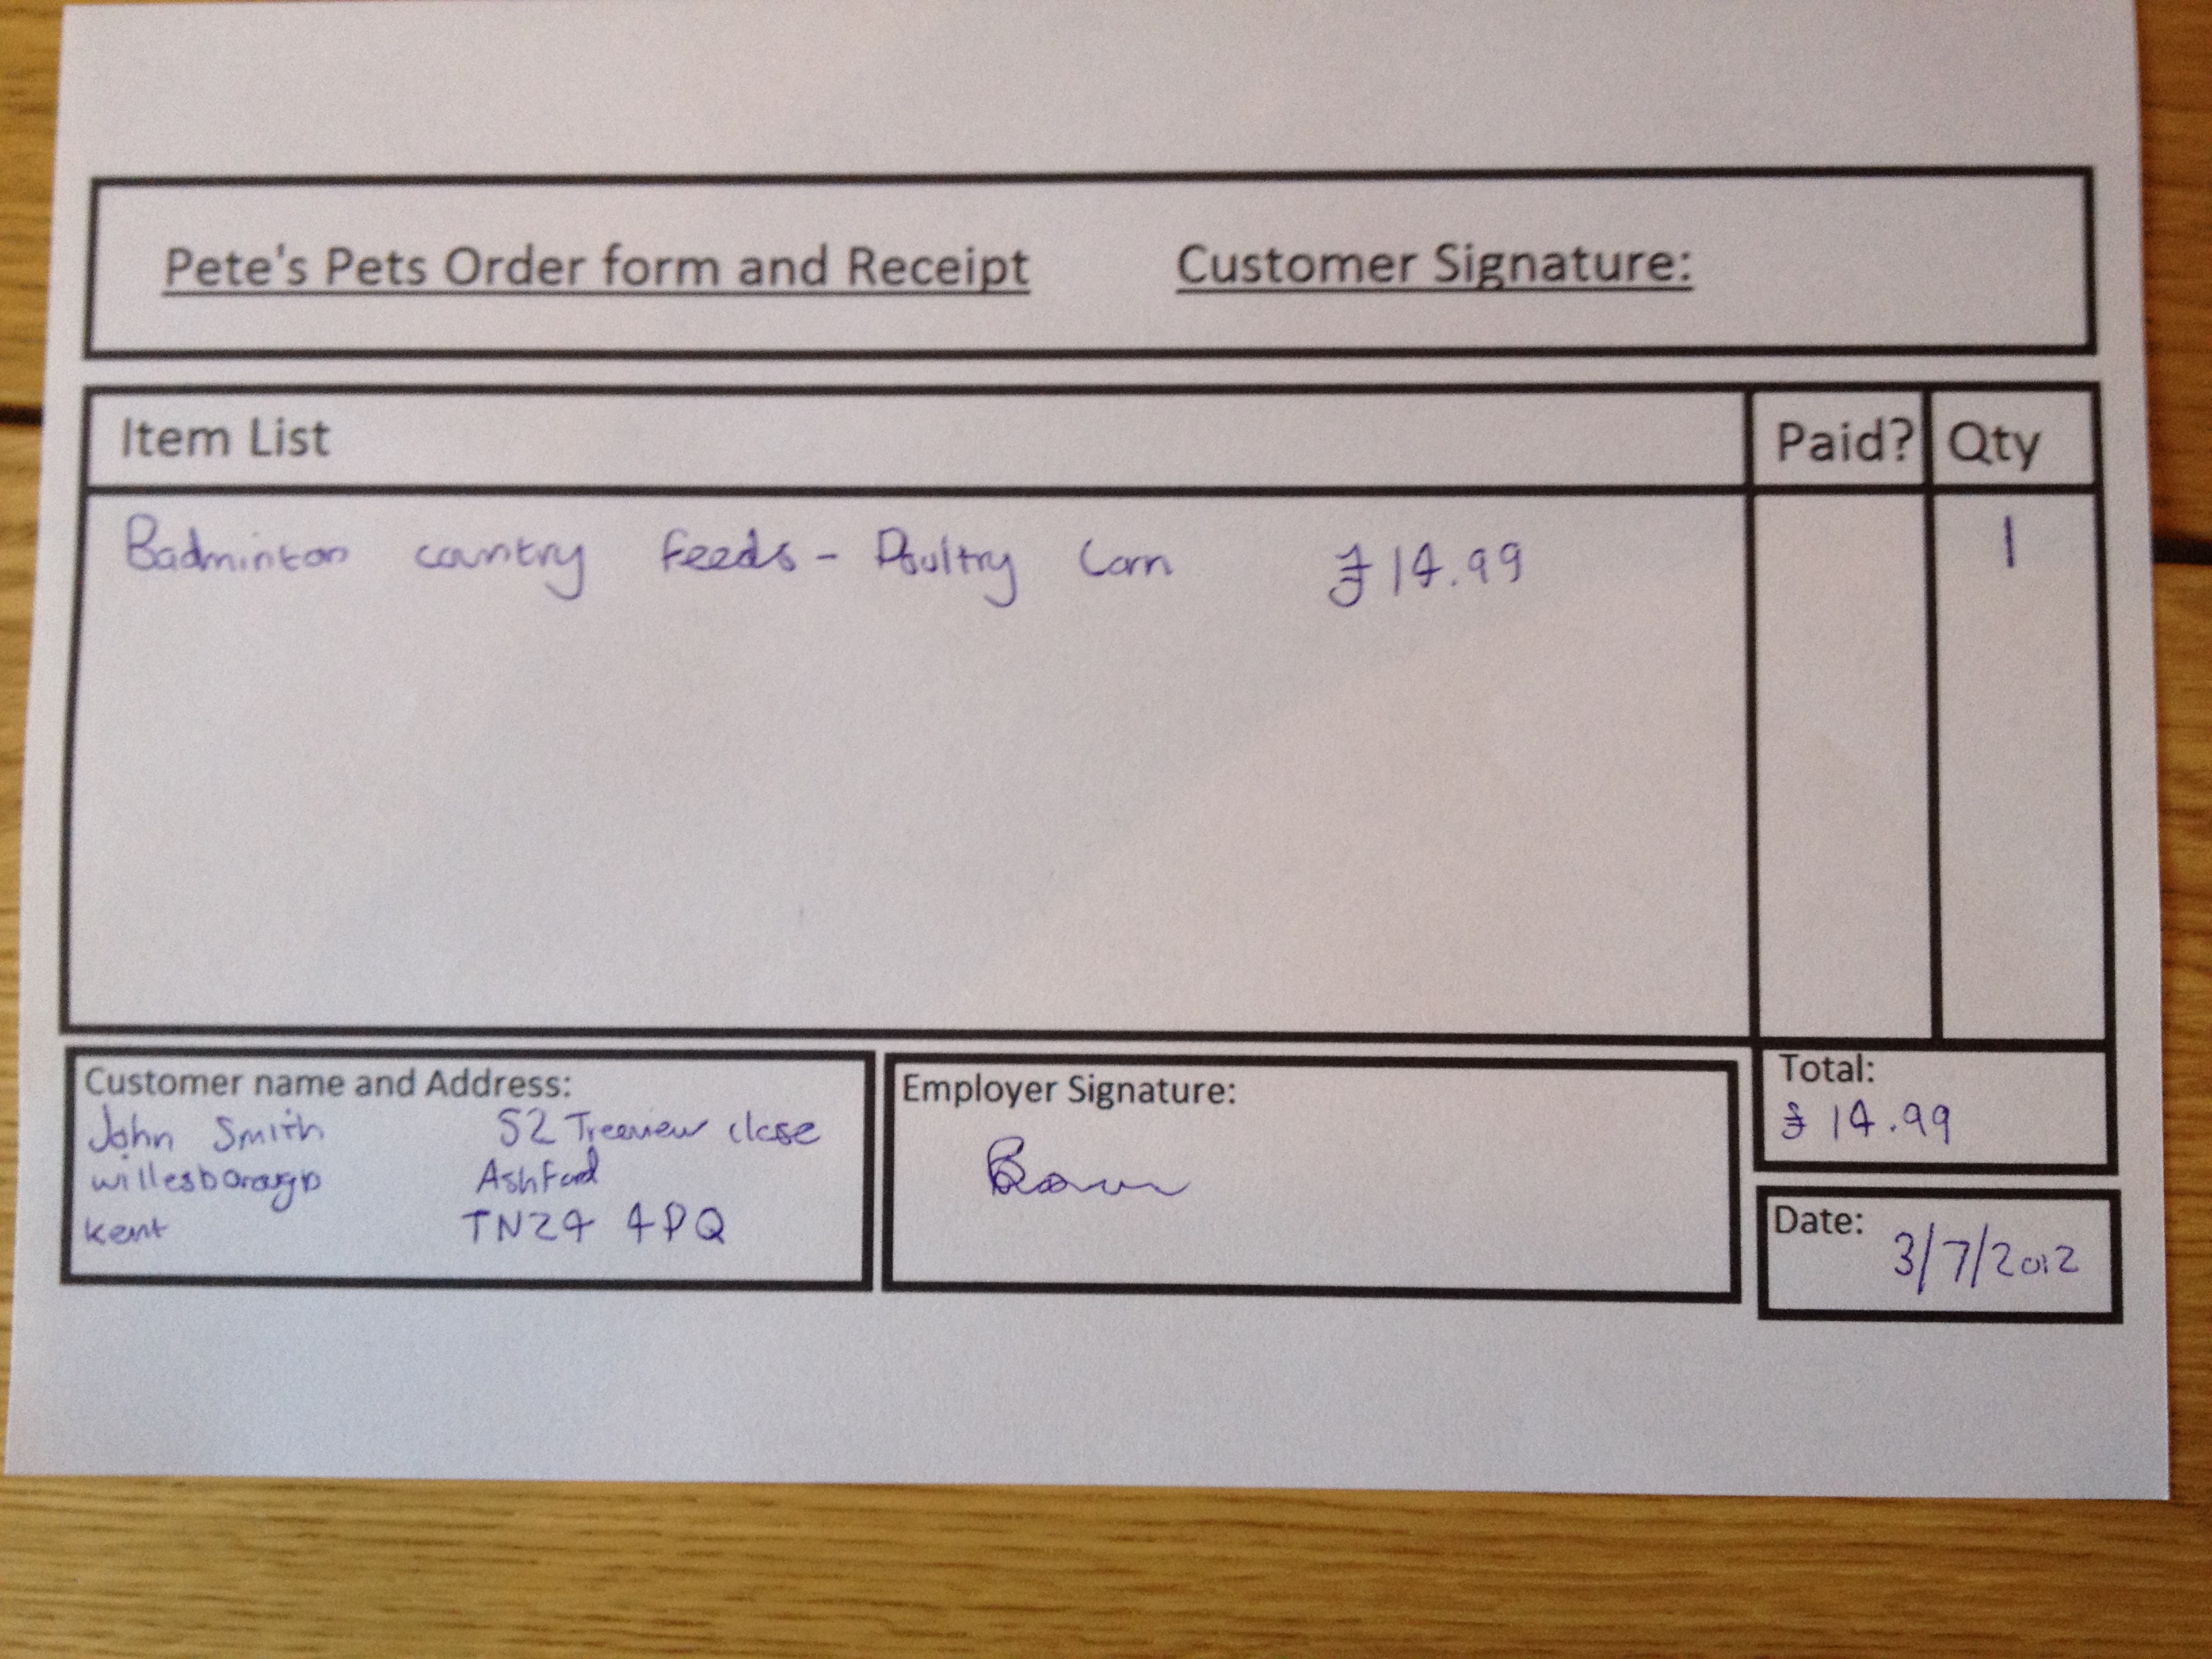 Pete's Pets Order form and Receipt Customer Signature:
Item List Paid? Qty
Badminton country feeds - Poultry Corn £14.99 1
Customer name and Address:
John Smith 52 Treeview close
willesborough Ashford
kent TN24 4PQ
Employer Signature:
Total:
£14.99
Date: 3/7/2012